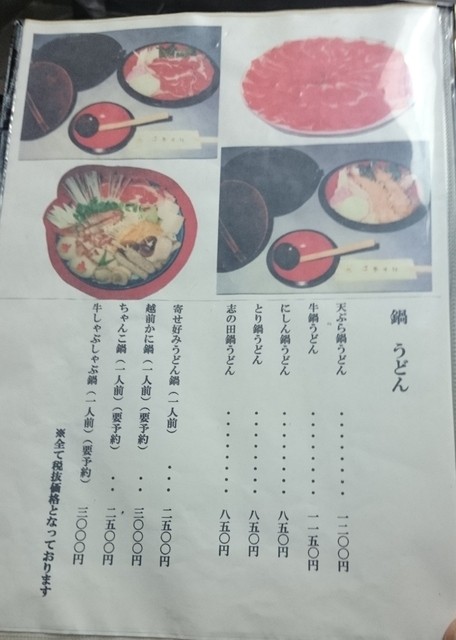 鍋 うどん
天ぷら鍋うどん ・・・・・・・・ 一二〇〇円
牛鍋うどん ・・・・・・・・ 一一五〇円
にしん鍋うどん ・・・・・・・・ 八五〇円
とり鍋うどん ・・・・・・・・ 八五〇円
志の田鍋うどん ・・・・・・・・ 八五〇円
寄せ好みうどん鍋（一人前） ・・・ 二五〇〇円
越前かに鍋（一人前）（要予約） ・・ 三〇〇〇円
ちゃんこ鍋（一人前）（要予約） ・・ 二五〇〇円
牛しゃぶしゃぶ鍋（一人前）（要予約） 三〇〇〇円
※全て税抜価格となっております